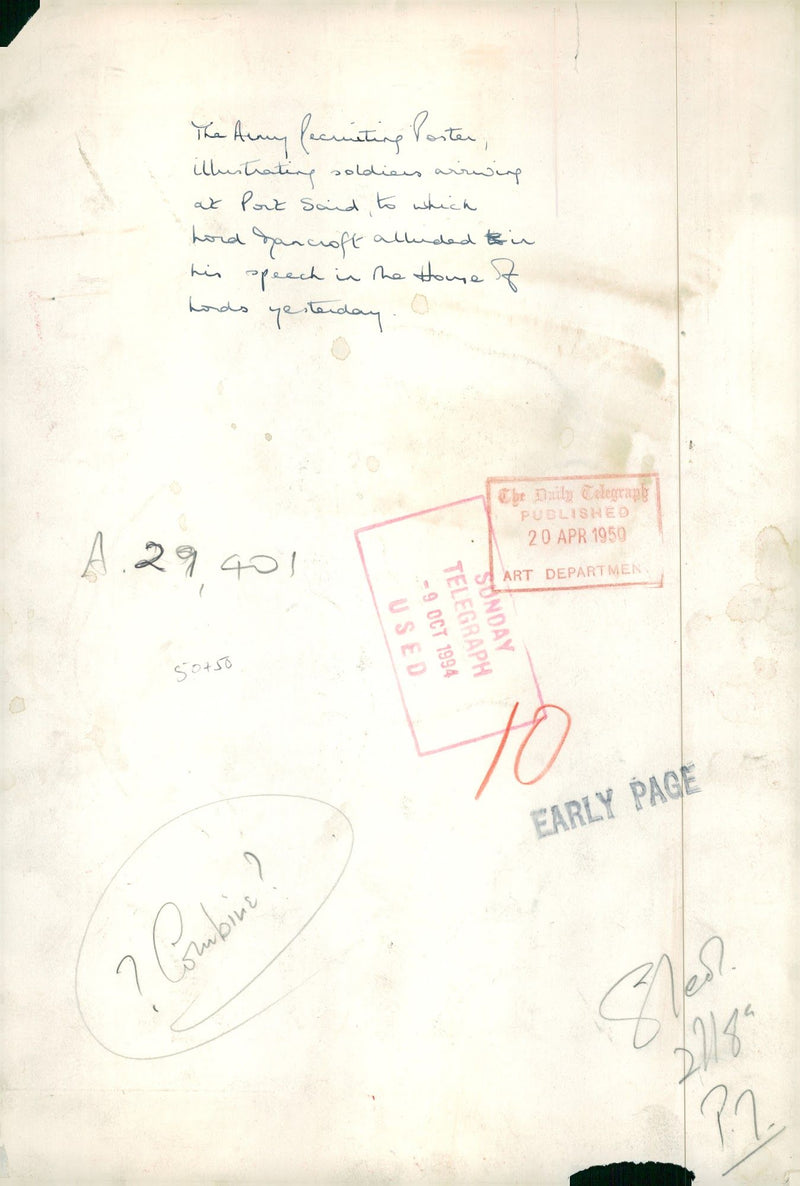 The Army Recruiting Poster,
illustrating soldiers arriving
at Port Said, to which
Lord Mancroft alluded in
his speech in the House of
Lords yesterday.
The Daily Telegraph
PUBLISHED
20 APR 1959
ART DEPARTMEN
A. 29,401
SUNDAY
TELEGRAPH
- 9 OCT 1994
USED
50+50
10
EARLY PAGE
? Combine?